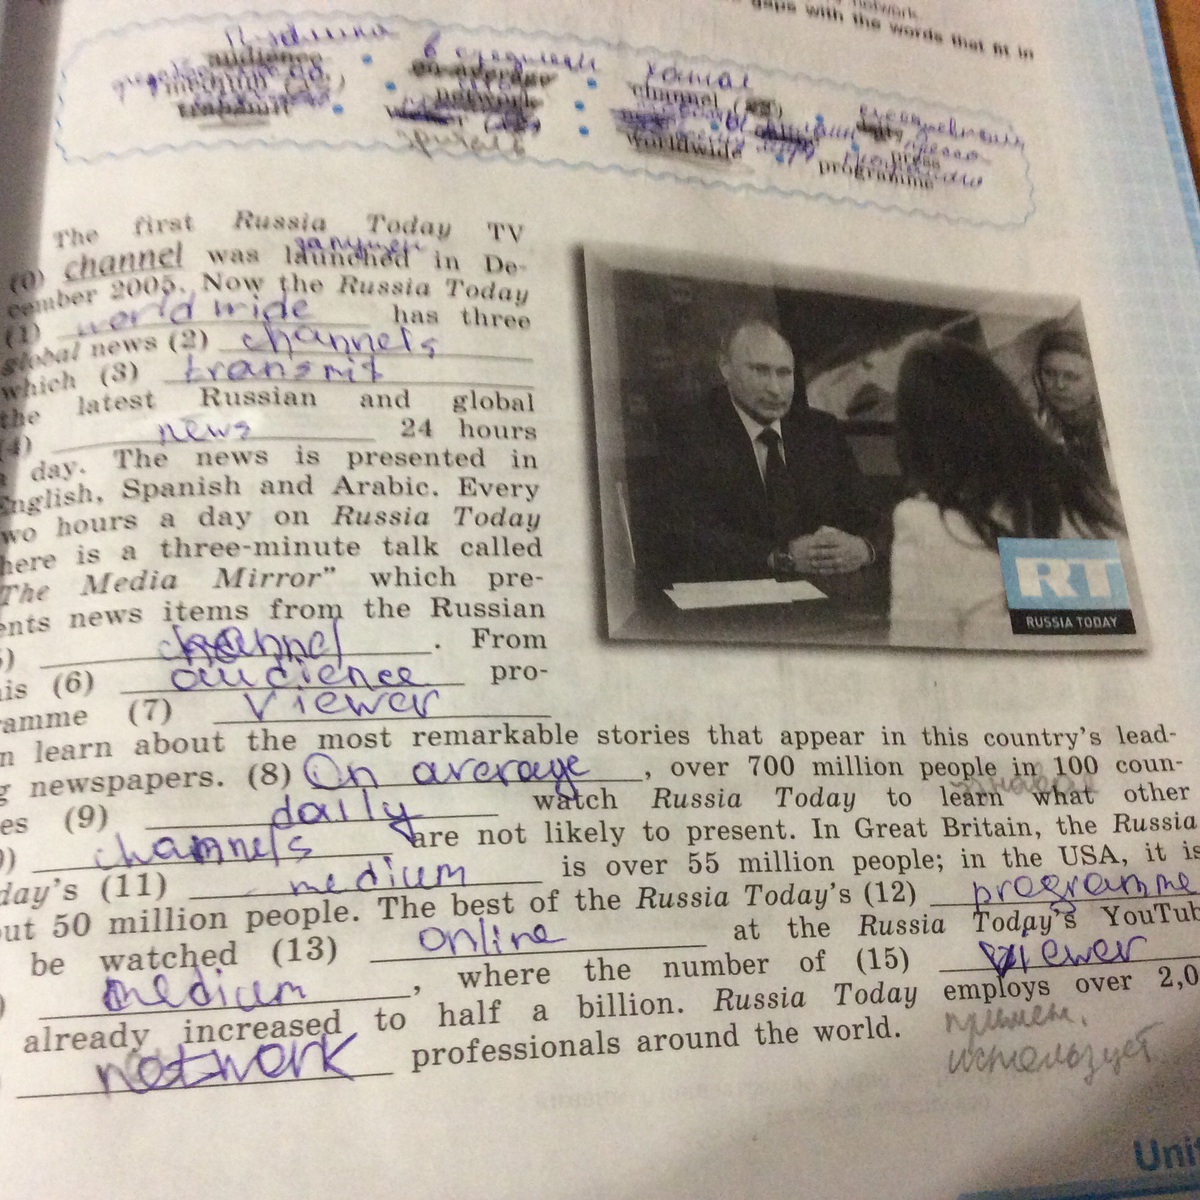 network.
gaps with the words that fit in
audience
в среднем
on average
network
канал
channel
worldwide
press
programme
зритель
The first Russia Today TV
(0) channel was launched in De-
cember 2005. Now the Russia Today
(1) world wide has three
global news (2) channels
which (3) transmit
the latest Russian and global
(4) news 24 hours
day. The news is presented in
English, Spanish and Arabic. Every
wo hours a day on Russia Today
here is a three-minute talk called
The Media Mirror” which pre-
ents news items from the Russian
) channel. From
is (6) audience pro-
amme (7) viewer
n learn about the most remarkable stories that appear in this country’s lead-
g newspapers. (8) On average, over 700 million people in 100 coun-
es (9) daily watch Russia Today to learn what other
) channels are not likely to present. In Great Britain, the Russia
day’s (11) medium is over 55 million people; in the USA, it is
ut 50 million people. The best of the Russia Today’s (12) programme
be watched (13) online at the Russia Today’s YouTub
) medium, where the number of (15) viewer
already increased to half a billion. Russia Today employs over 2,0
network professionals around the world.
использует
RT
RUSSIA TODAY
Uni